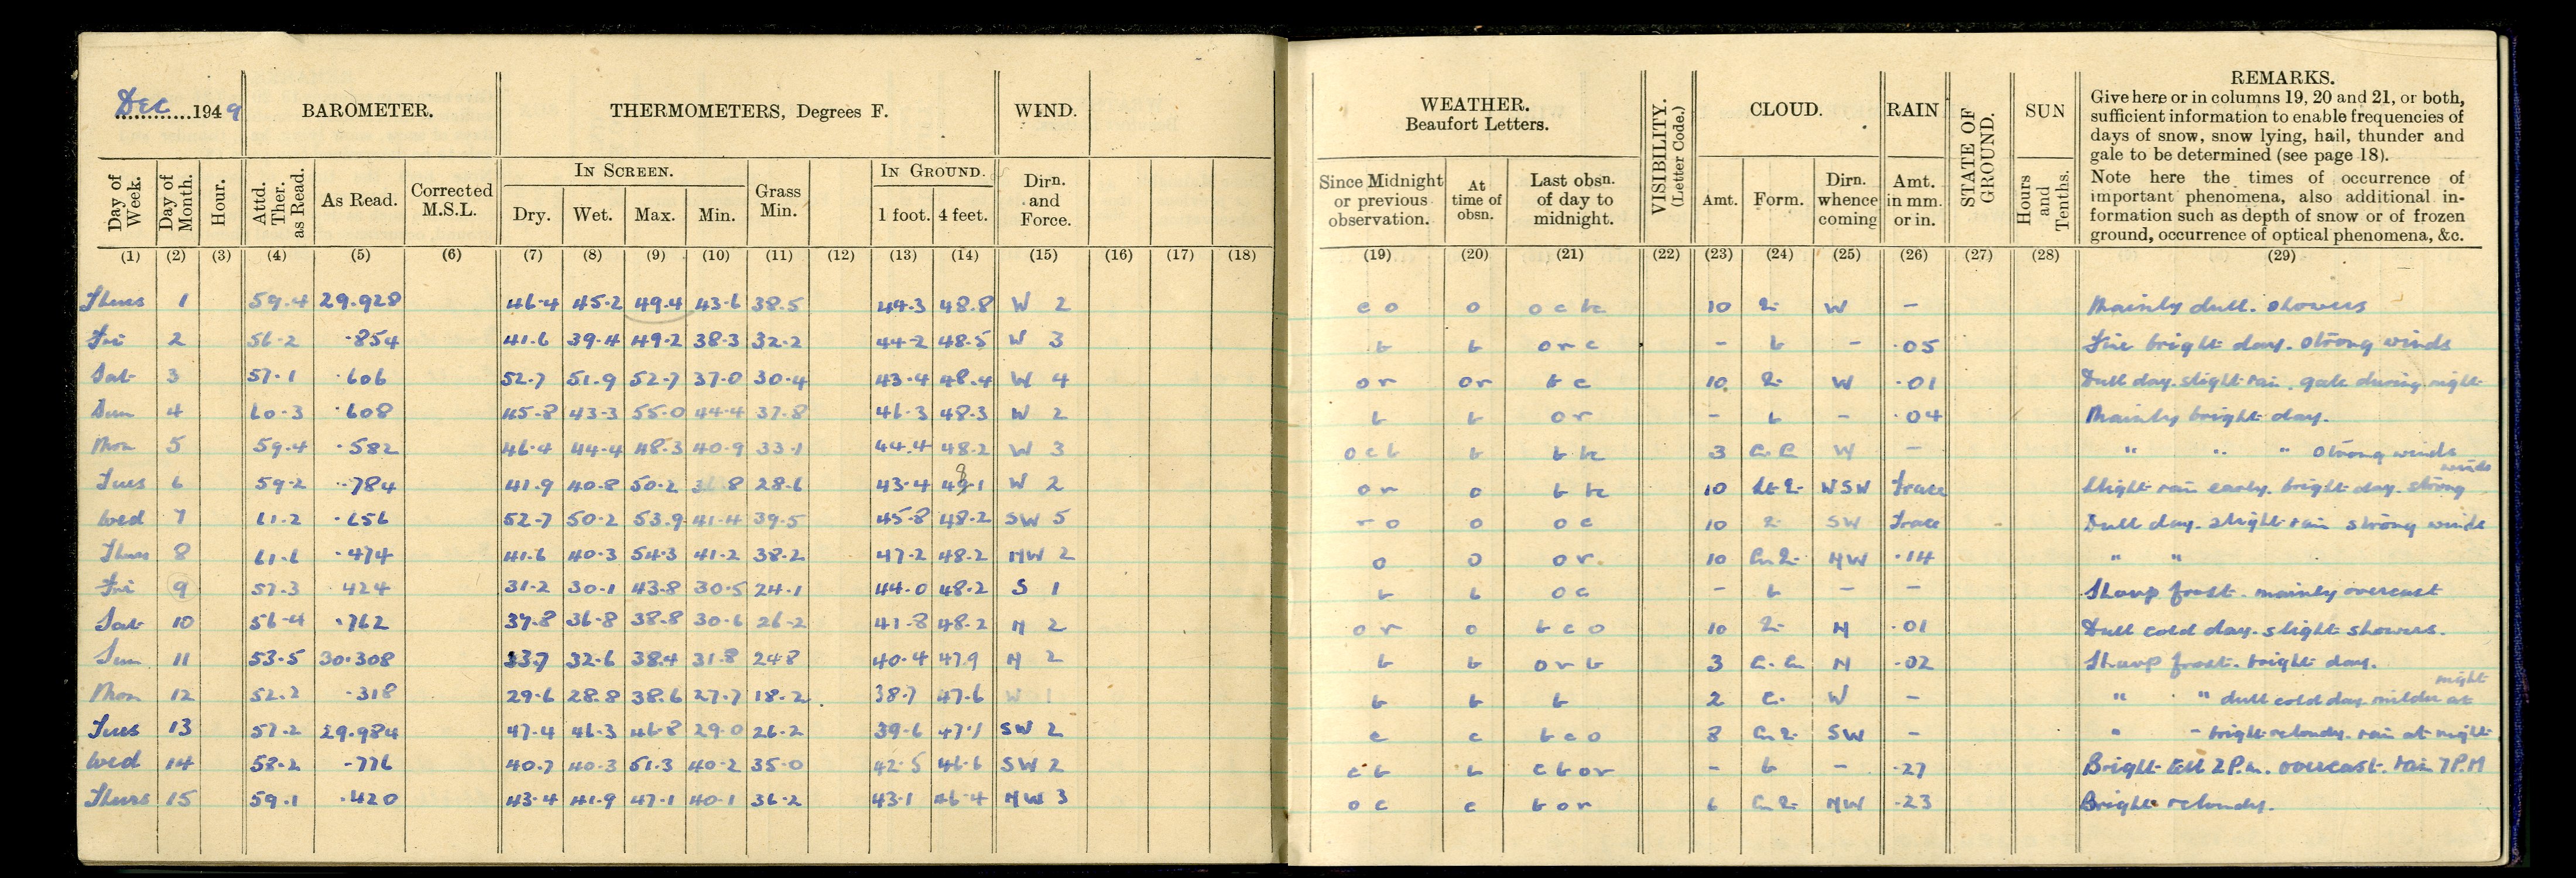 Dec 1949 BAROMETER. THERMOMETERS, Degrees F. WIND. WEATHER. Beaufort Letters. VISIBILITY. (Letter Code.) CLOUD. RAIN STATE OF GROUND. SUN REMARKS.
Give here or in columns 19, 20 and 21, or both,
sufficient information to enable frequencies of
days of snow, snow lying, hail, thunder and
gale to be determined (see page 18).
Note here the times of occurrence of
important phenomena, also additional in-
formation such as depth of snow or of frozen
ground, occurrence of optical phenomena, &c.
IN SCREEN. IN GROUND.
Day of Week. Day of Month. Hour. Attd. Ther. as Read. As Read. Corrected M.S.L. Dry. Wet. Max. Min. Grass Min. 1 foot. 4 feet. Dirn. and Force. Since Midnight or previous observation. At time of obsn. Last obsn. of day to midnight. Amt. Form. Dirn. whence coming Amt. in mm. or in. Hours and Tenths.
(1) (2) (3) (4) (5) (6) (7) (8) (9) (10) (11) (12) (13) (14) (15) (16) (17) (18) (19) (20) (21) (22) (23) (24) (25) (26) (27) (28) (29)
Thurs 1 59.4 29.928 46.4 45.2 49.4 43.6 38.5 44.3 48.8 W 2 c o o o c 10 W - Mainly dull. showers
Fri 2 56.2 .854 41.6 39.4 49.2 38.3 32.2 44.2 48.5 W 3 b b o r c - b - .05 Fine bright day. strong winds
Sat 3 57.1 .606 52.7 51.9 52.7 37.0 30.4 43.4 48.4 W 4 o r o r b c 10 W .01 Dull day. slight rain. gale during night
Sun 4 60.3 .608 45.8 43.3 55.0 44.4 37.8 46.3 48.3 W 2 b b o r - b - .04 Mainly bright day.
Mon 5 59.4 .582 46.4 44.4 48.3 40.9 33.1 44.4 48.2 W 3 o c b b b 3 W - " " " strong winds
Tues 6 59.2 .784 41.9 40.8 50.2 28.6 43.4 48.1 W 2 o r o b 10 WSW trace Slight rain early. bright day. strong winds
Wed 7 61.2 .656 52.7 50.2 53.9 41.4 39.5 45.8 48.2 SW 5 r o o o c 10 SW trace Dull day. slight rain strong winds
Thurs 8 61.6 .474 41.6 40.3 54.3 41.2 38.2 47.2 48.2 NW 2 o o o r 10 NW .14 " "
Fri 9 57.3 .424 31.2 30.1 43.8 30.5 24.1 44.0 48.2 S 1 b b o c - b - - Sharp frost. mainly overcast
Sat 10 56.4 .762 37.8 36.8 38.8 30.6 26.2 41.8 48.2 N 2 o r o b c o 10 N .01 Dull cold day. slight showers.
Sun 11 53.5 30.308 33.7 32.6 38.4 31.8 24.8 40.4 47.9 N 2 b b o r b 3 N .02 Sharp frost. bright day.
Mon 12 52.2 .318 29.6 28.8 38.6 27.7 18.2 38.7 47.6 W 1 b b b 2 C. W - " " dull cold day. milder at night
Tues 13 57.2 29.984 47.4 46.3 46.8 29.0 26.2 39.6 47.1 SW 2 c c b c o 8 SW - " - bright & cloudy. rain at night
Wed 14 58.2 .776 40.7 40.3 51.3 40.2 35.0 42.5 46.6 SW 2 c b b c b o r - b - .27 Bright till 2 P.m. overcast. rain 7 P.M
Thurs 15 59.1 .420 43.4 41.9 47.1 40.1 36.2 43.1 46.4 NW 3 o c c b o r 6 NW .23 Bright & cloudy.